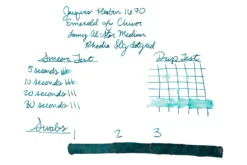 Jacques Herbin 1670
Emerald of Chivor
Lamy Al-Star Medium
Rhodia dotgrid
Smear Test
Drip Test
5 seconds
10 seconds
20 seconds
30 seconds
Swabs
1 2 3